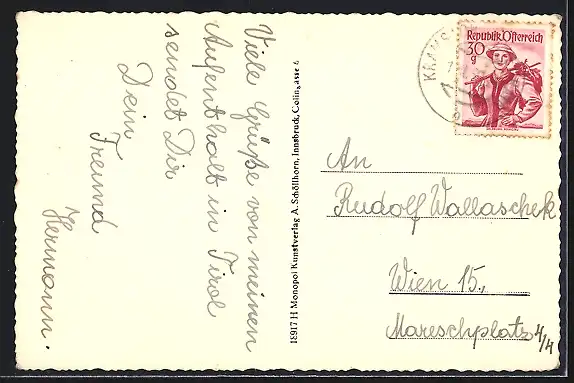 Viele Grüße von meinen
Aufenthalt in Tirol
sendet Dir
Dein
Freund
Hermann.
18917 H Monopol Kunstverlag A. Schöllhorn, Innsbruck, Colingasse 6
Republik Österreich
30
g
An
Rudolf Wallaschek
Wien 15.,
Mareschplatz 4/4